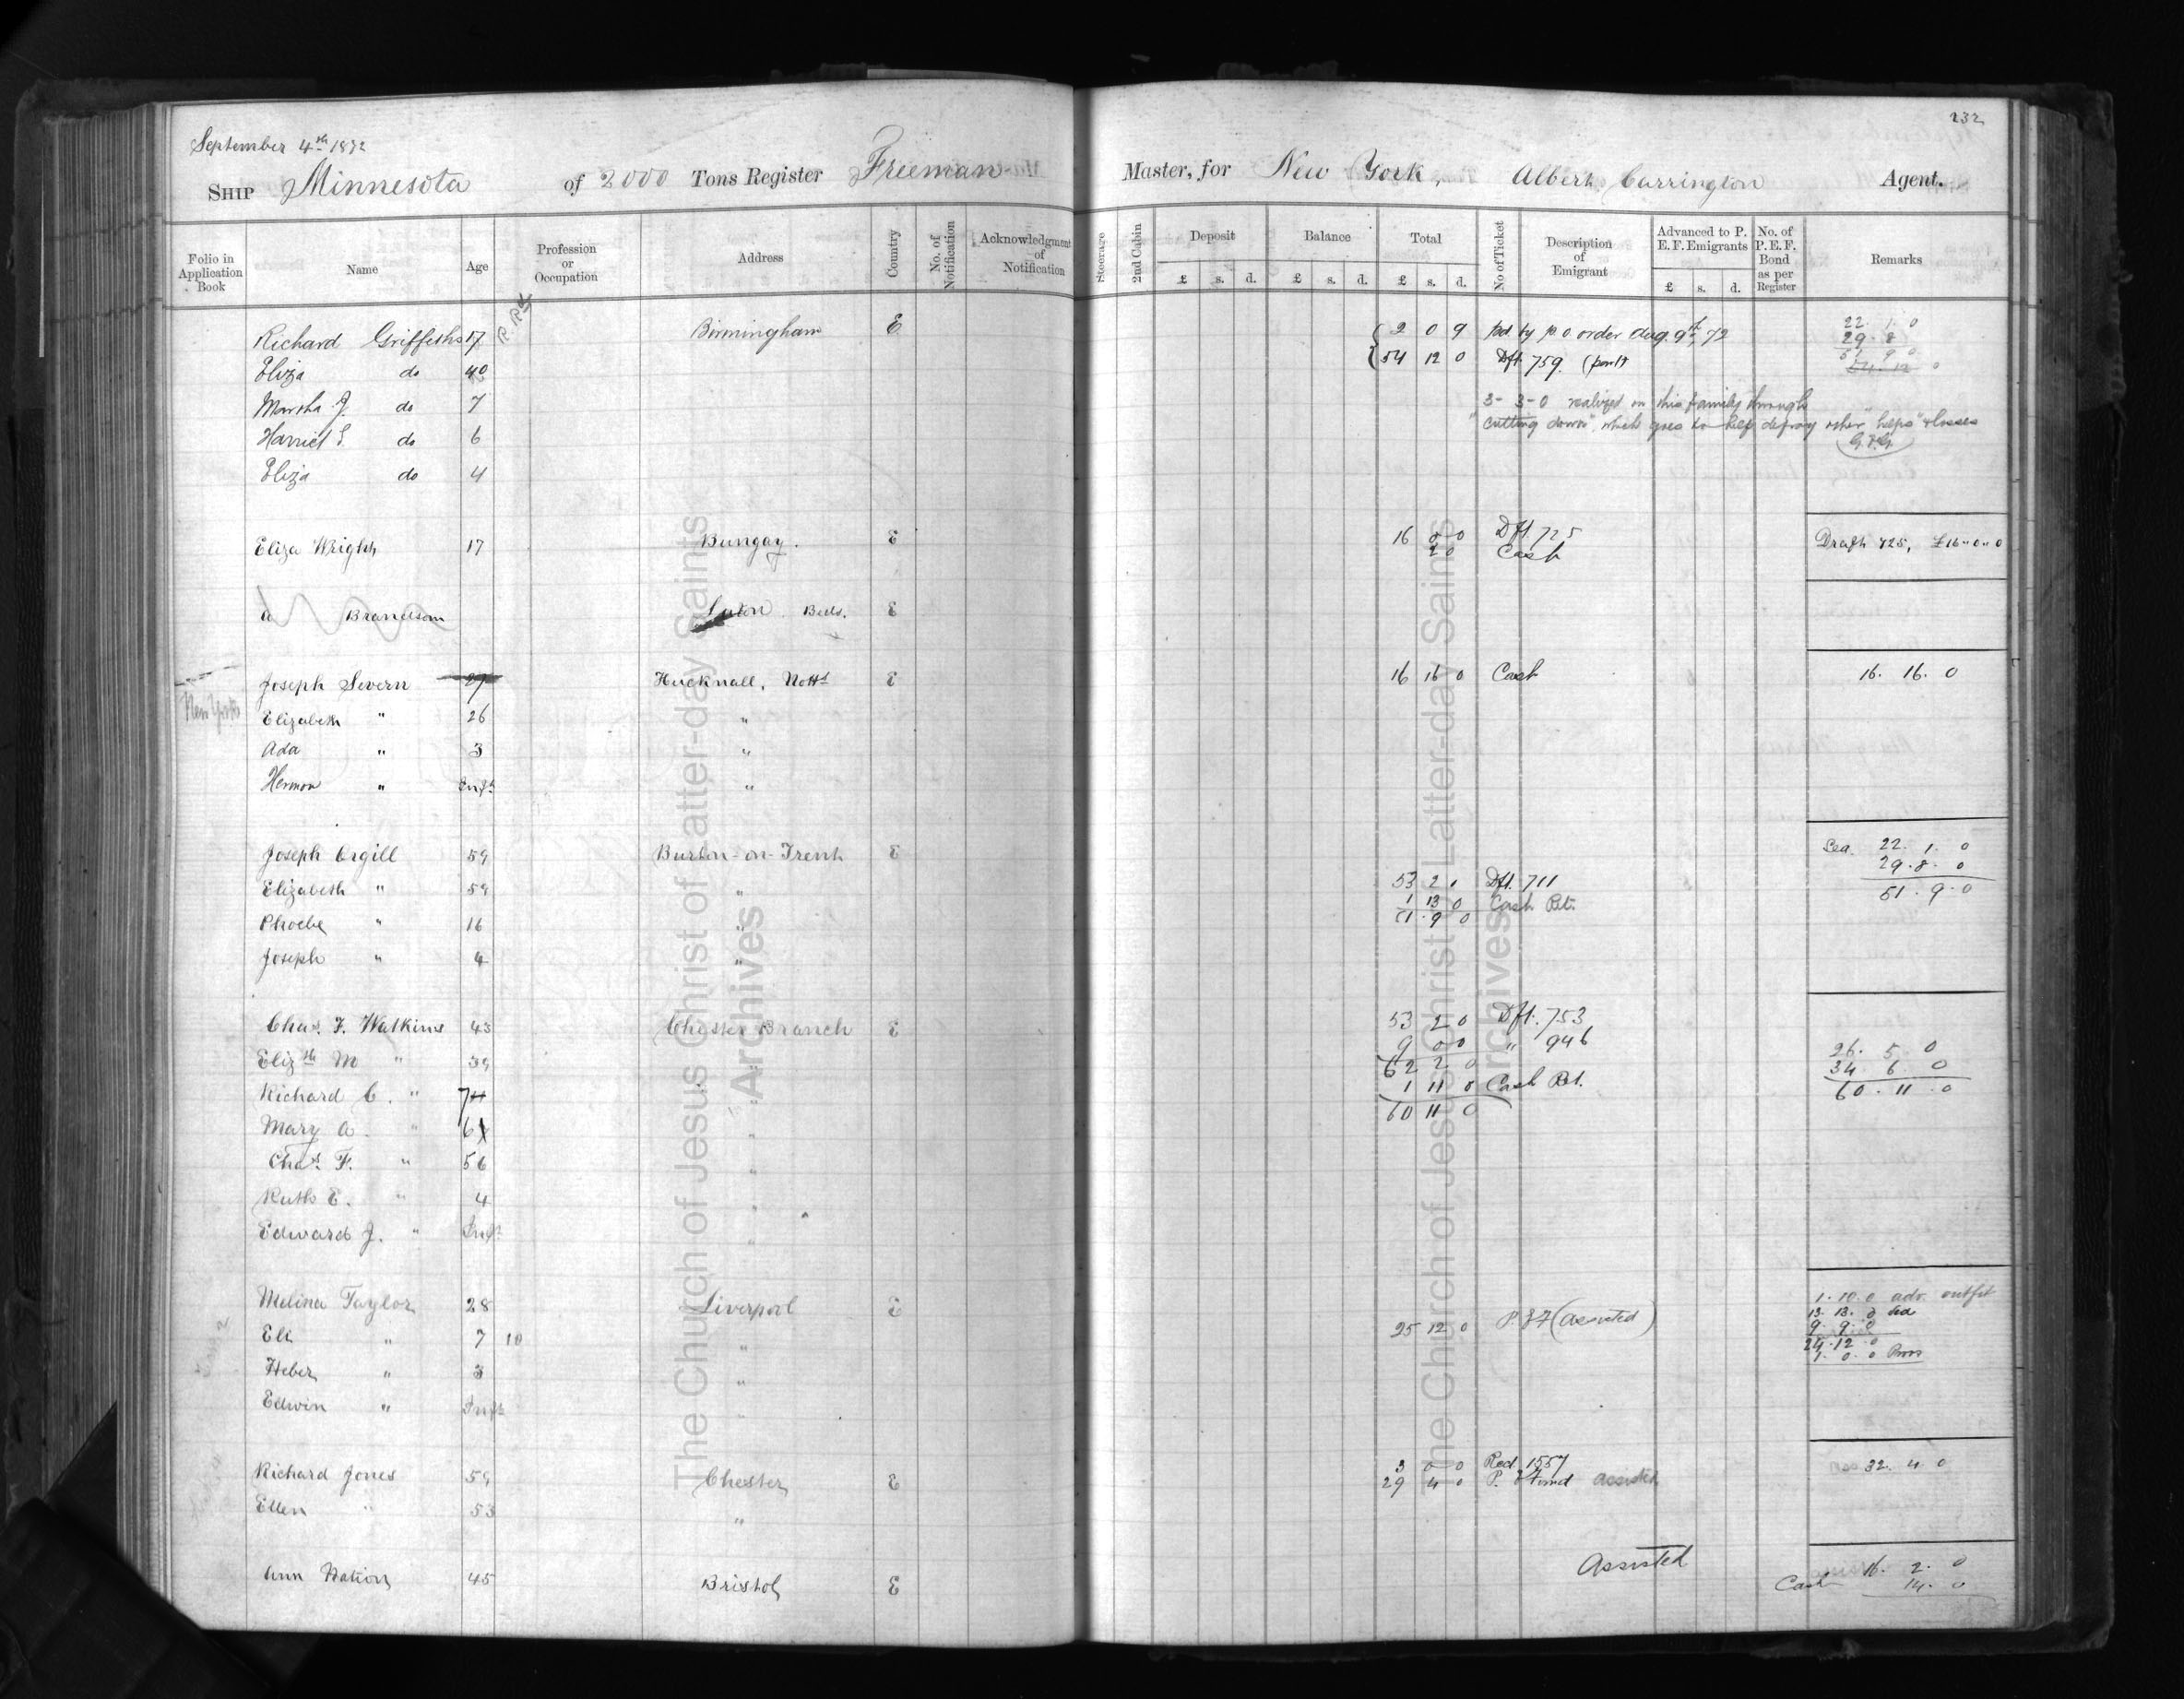 232
September 4th 1872
Ship Minnesota of 2000 Tons Register Freeman Master, for New York, Albert Carrington Agent.
Folio in Application Book Name Age Profession or Occupation Address Country No. of Notification Acknowledgment of Notification Steerage 2nd Cabin Deposit Balance Total No of Ticket Description of Emigrant Advanced to P. E. F. Emigrants No. of P. E. F. Bond as per Register Remarks
£ s. d. £ s. d. £ s. d. £ s. d.
Richard Griffiths 17 Birmingham E 2 0 9 pd by p o order Aug. 9th, 72 22 1 0
29 8
Eliza do 40 54 12 0 Dft. 759 (part) 51 9 0
54 12 0
Martha J. do 7 3-3-0 realized on this family through
Harriet E. do 6 "cutting down" which goes to help defray other "helps" & losses
Eliza do 4
Eliza Wright 17 Bungay. E 16 0 0 Dft. 725 Draft 725, £16..0..0
2 0 Cash
Brandsom Luton Beds. E
Joseph Severn 27 Hucknall, Notts E 16 16 0 Cash 16. 16. 0
New York
Elizabeth " 26 "
Ada " 3 "
Hermon " Inft "
Joseph Orgill 59 Burton-on-Trent E Sea. 22. 1. 0
29. 8. 0
Elizabeth " 59 " 53 2 0 Dft. 711 51. 9. 0
1 13 0 Cash Ret.
Phoebe " 16 " 51 9 0
Joseph " 4 "
Chas. F. Watkins 43 Chester Branch E 53 2 0 Dft. 753
9 0 0 " 946 26. 5. 0
Elizth M " 39 62 2 0 34 6. 0
Richard C. " 7 " 1 11 0 Cash Ret. 60. 11. 0
60 11 0
Mary A. " 6 "
Chas. F. " 5 "
Ruth E. " 4 "
Edward J. " Inft "
Melina Taylor 28 Liverpool E 1. 10. 0 adv. outfit
25 12 0 (Assisted) 13. 13. 0 Sea
Eli " 7 10 " 9. 9. 0
24. 12. 0
1. 0. 0
Heber " 3 "
Edwin " Inft "
Richard Jones 59 Chester E 3 0 0 Rect. 1557 32. 4. 0
29 4 0 P. E Fund assisted
Ellen " 53 "
Ann Nation 45 Bristol E Assisted 16. 2. 0
Cash 14. 0
The Church of Jesus Christ of Latter-day Saints
Archives
The Church of Jesus Christ of Latter-day Saints
Archives